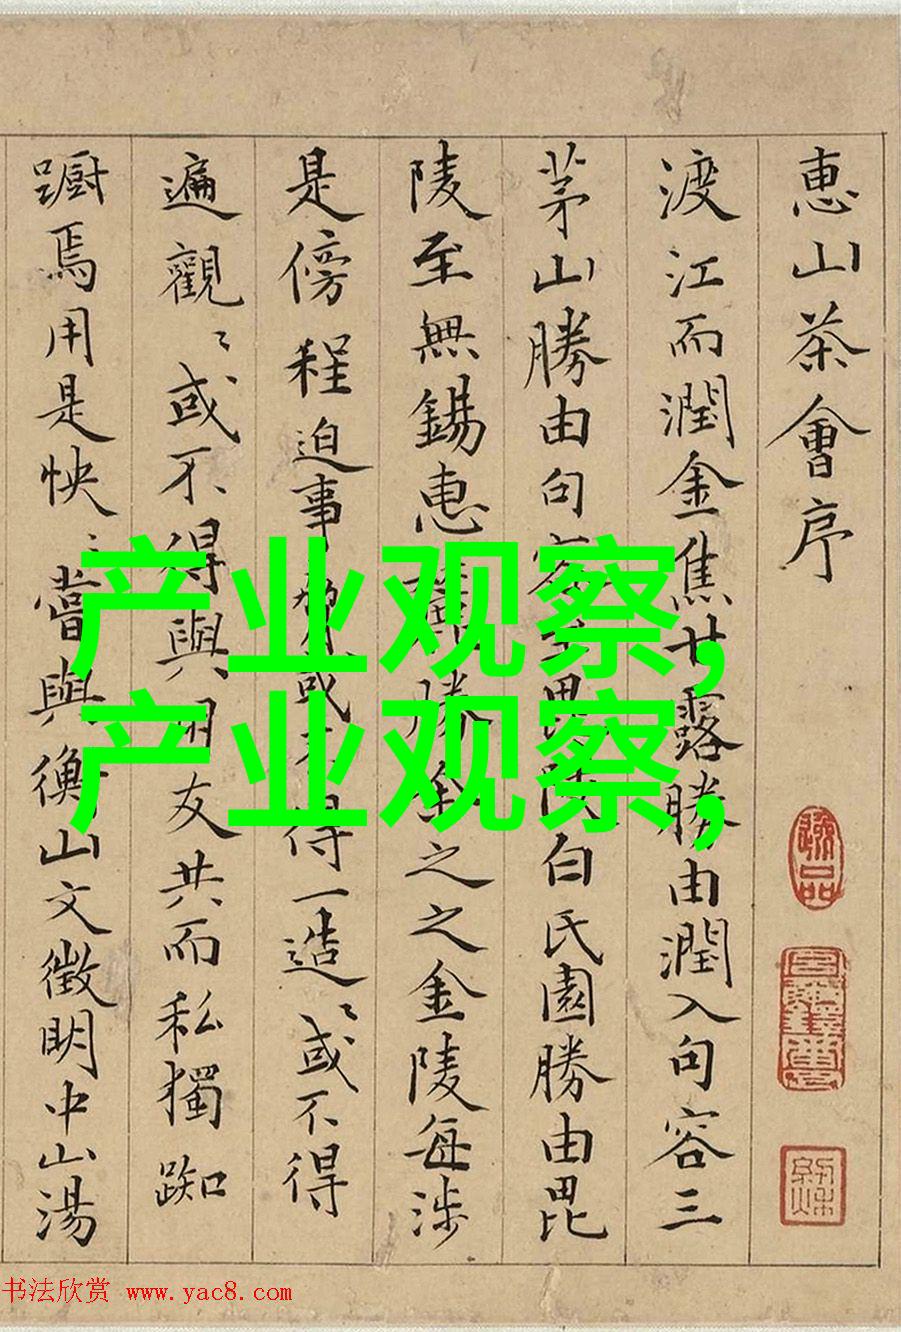 惠山茶會序
渡江而潤金焦甘露勝由潤入句容三
茅山勝由句容至毘陵白氏園勝由毘
陵至無錫惠麓勝全之之金陵每涉
是傍程迫事奪或不得一造〻或不得
遍觀〻或不得與朋友共而私獨踟
蹰焉用是怏〻嘗與衡山文徵明中山湯
产业观察,
产业观察,
书法欣赏 www.yac8.com